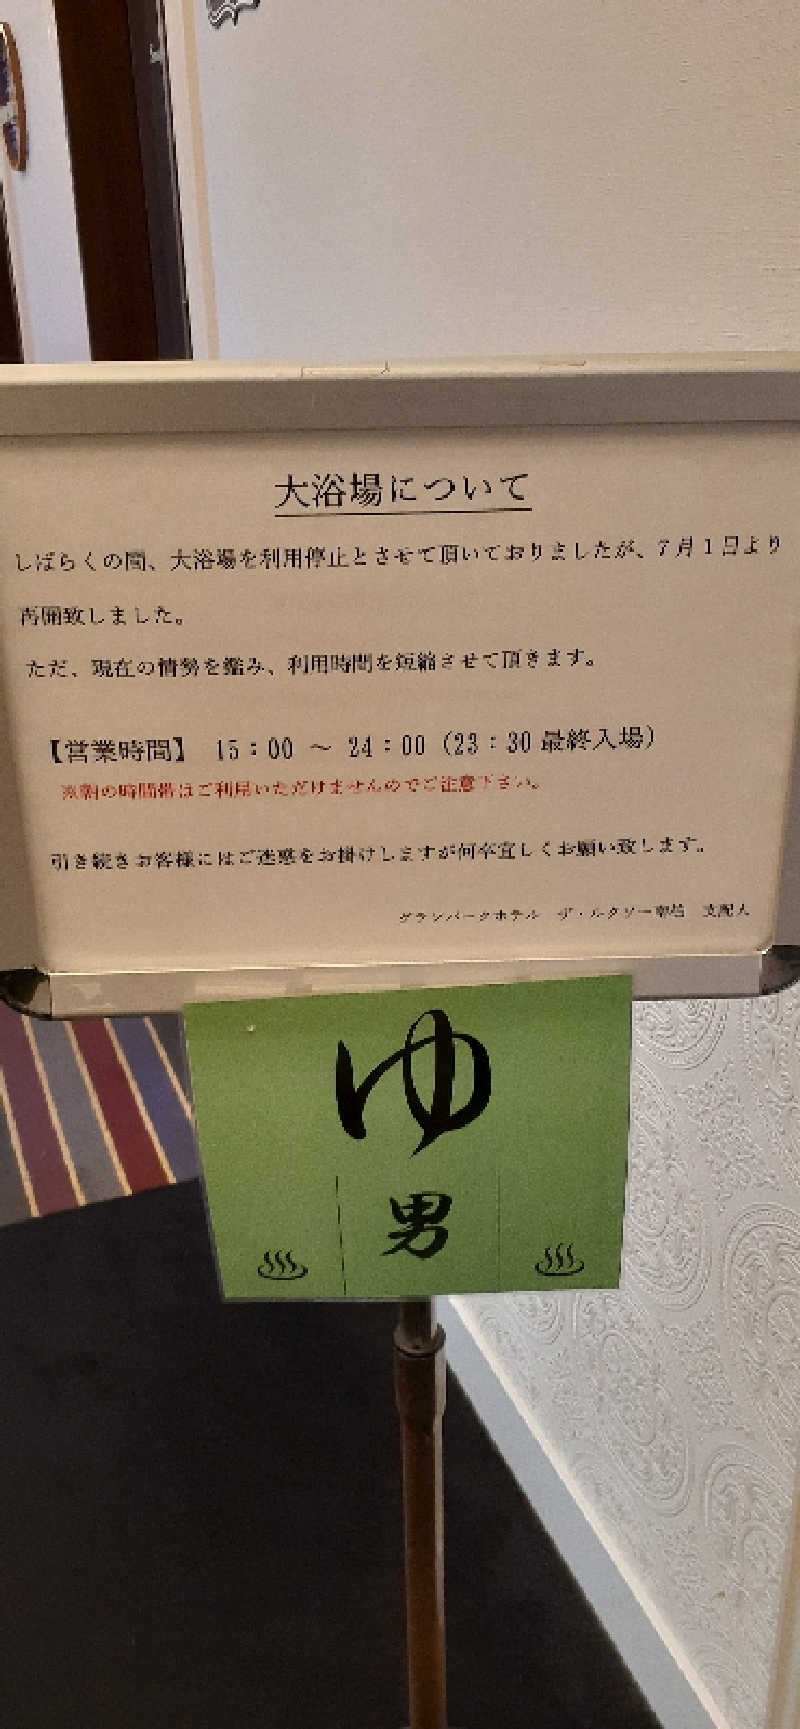 大浴場について
しばらくの間、大浴場を利用停止とさせて頂いておりましたが、7月1日より
再開致しました。
ただ、現在の情勢を鑑み、利用時間を短縮させて頂きます。
【営業時間】 15:00 ～ 24:00（23:30最終入場）
※朝の時間帯はご利用いただけませんのでご注意下さい。
引き続きお客様にはご迷惑をお掛けしますが何卒宜しくお願い致します。
グランパークホテル ザ・ルクソー南柏 支配人
ゆ
男